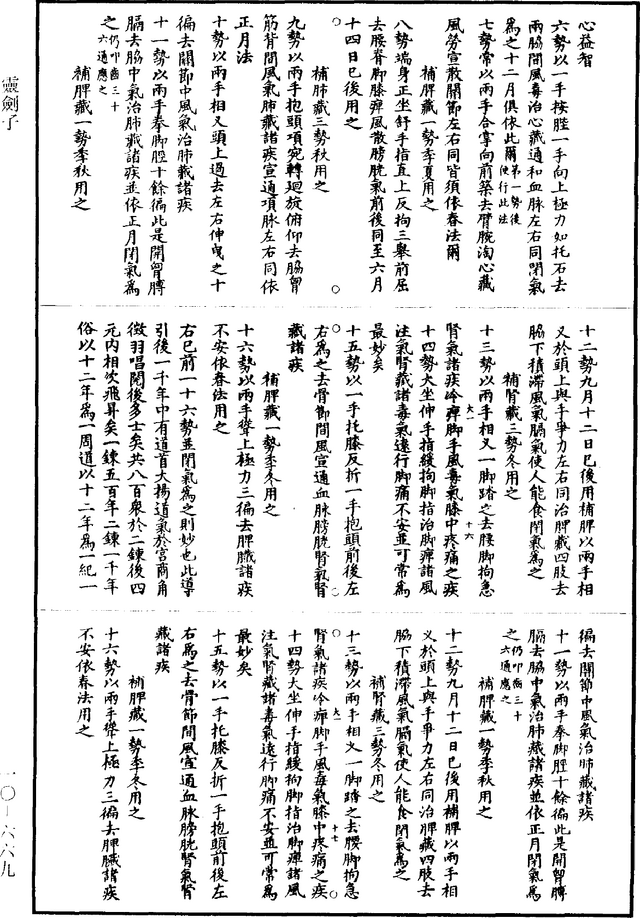 心益智
六勢以一手按䏶一手向上極力如托石去
兩脇間風毒治心藏通和血脉左右同閉氣
爲之十二月俱依此爾第一勢後便行此法
七勢常以兩手合掌向前築去臂腕淘心藏
風勞宣散關節左右同皆須依春法爾
補脾藏一勢季夏用之
八勢端身正坐舒手指直上反拘三舉前屈
去腰脊脚膝痺風散膀胱氣前後同至六月
十四日已後用之
補肺藏三勢秋用之
九勢以兩手抱頭項宛轉廻旋俯仰去脇曾
筋背間風氣肺藏諸疾宣通項脉左右同依
正月法
十勢以兩手相叉頭上過去左右伸曳之十
徧去關節中風氣治肺藏諸疾
十一勢以兩手拳脚脛十餘徧此是開胷膊
膈去脇中氣治肺藏諸疾並依正月閉氣爲
之仍叩齒三十六通應之
補脾藏一勢季秋用之
十二勢九月十二日已後用補脾以兩手相
叉於頭上與手爭力左右同治脾藏四肢去
脇下積滯風氣膈氣使人能食閉氣爲之
補腎藏三勢冬用之
十三勢以兩手相叉一脚踏之去腰脚拘急
腎氣諸疾冷痺脚手風毒氣膝中疼痛之疾
大一
十六
十四勢大坐伸手指緩拘脚指治脚痺諸風
注氣腎藏諸毒氣遠行脚痛不安並可常爲
最妙矣
十五勢以一手托膝反折一手抱頭前後左
右爲之去骨節間風宣通血脉膀胱氣腎
藏諸疾
補脾藏一勢季冬用之
十六勢以兩手聳上極力三徧去脾臟諸疾
不安依春法用之
右已前一十六勢並閉氣爲之則妙也此導
引後一千年中有道首大揚道氣於宮商角
徵羽唱關後多士矣共八百衆於二鍊後四
元內相次飛昇矣一鍊五百年二鍊一千年
俗以十二年爲一周道以十二年爲一紀一
徧去關節中風氣治肺藏諸疾
十一勢以兩手拳脚脛十餘徧此是開胷膊
膈去脇中氣治肺藏諸疾並依正月閉氣爲
之仍叩齒三十六通應之
補脾藏一勢季秋用之
十二勢九月十二日已後用補脾以兩手相
叉於頭上與手爭力左右同治脾藏四肢去
脇下積滯風氣膈氣使人能食閉氣爲之
補腎藏三勢冬用之
十三勢以兩手相叉一脚踏之去腰脚拘急
腎氣諸疾冷痺脚手風毒氣膝中疼痛之疾
大一
十七
十四勢大坐伸手指緩拘脚指治脚痺諸風
注氣腎藏諸毒氣遠行脚痛不安並可常爲
最妙矣
十五勢以一手托膝反折一手抱頭前後左
右爲之去骨節間風宣通血脉膀胱氣腎
藏諸疾
補脾藏一勢季冬用之
十六勢以兩手聳上極力三徧去脾臟諸疾
不安依春法用之
靈劍子
一〇-六六九